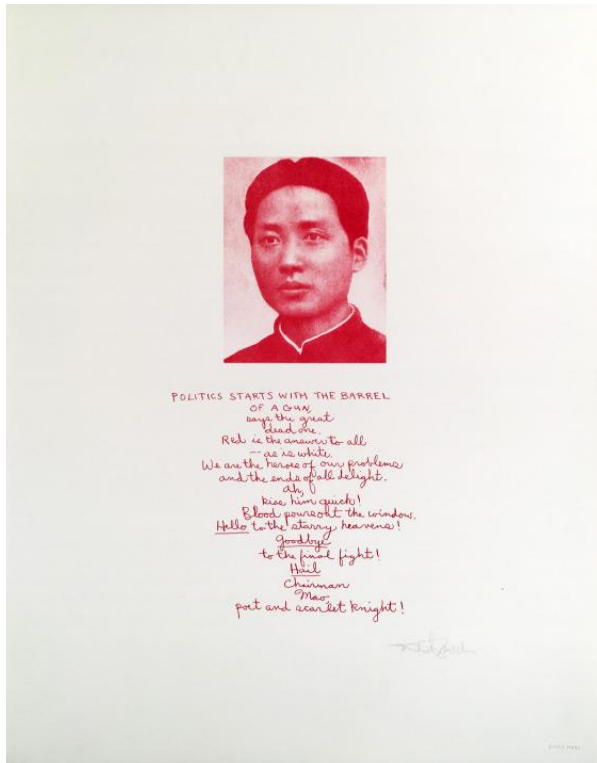 POLITICS STARTS WITH THE BARREL
OF A GUN,
says the great
dead one.
Red is the answer to all
-- as is white.
We are the heroes of our problems
and the ends of all delight.
Ah,
kiss him quick!
Blood pours out the window.
Hello to the starry heavens!
Goodbye
to the final fight!
Hail
Chairman
Mao,
poet and scarlet knight!